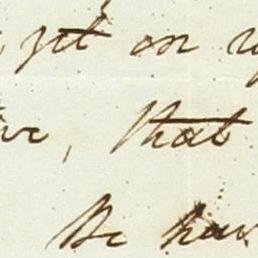 , yet on
, that
We have